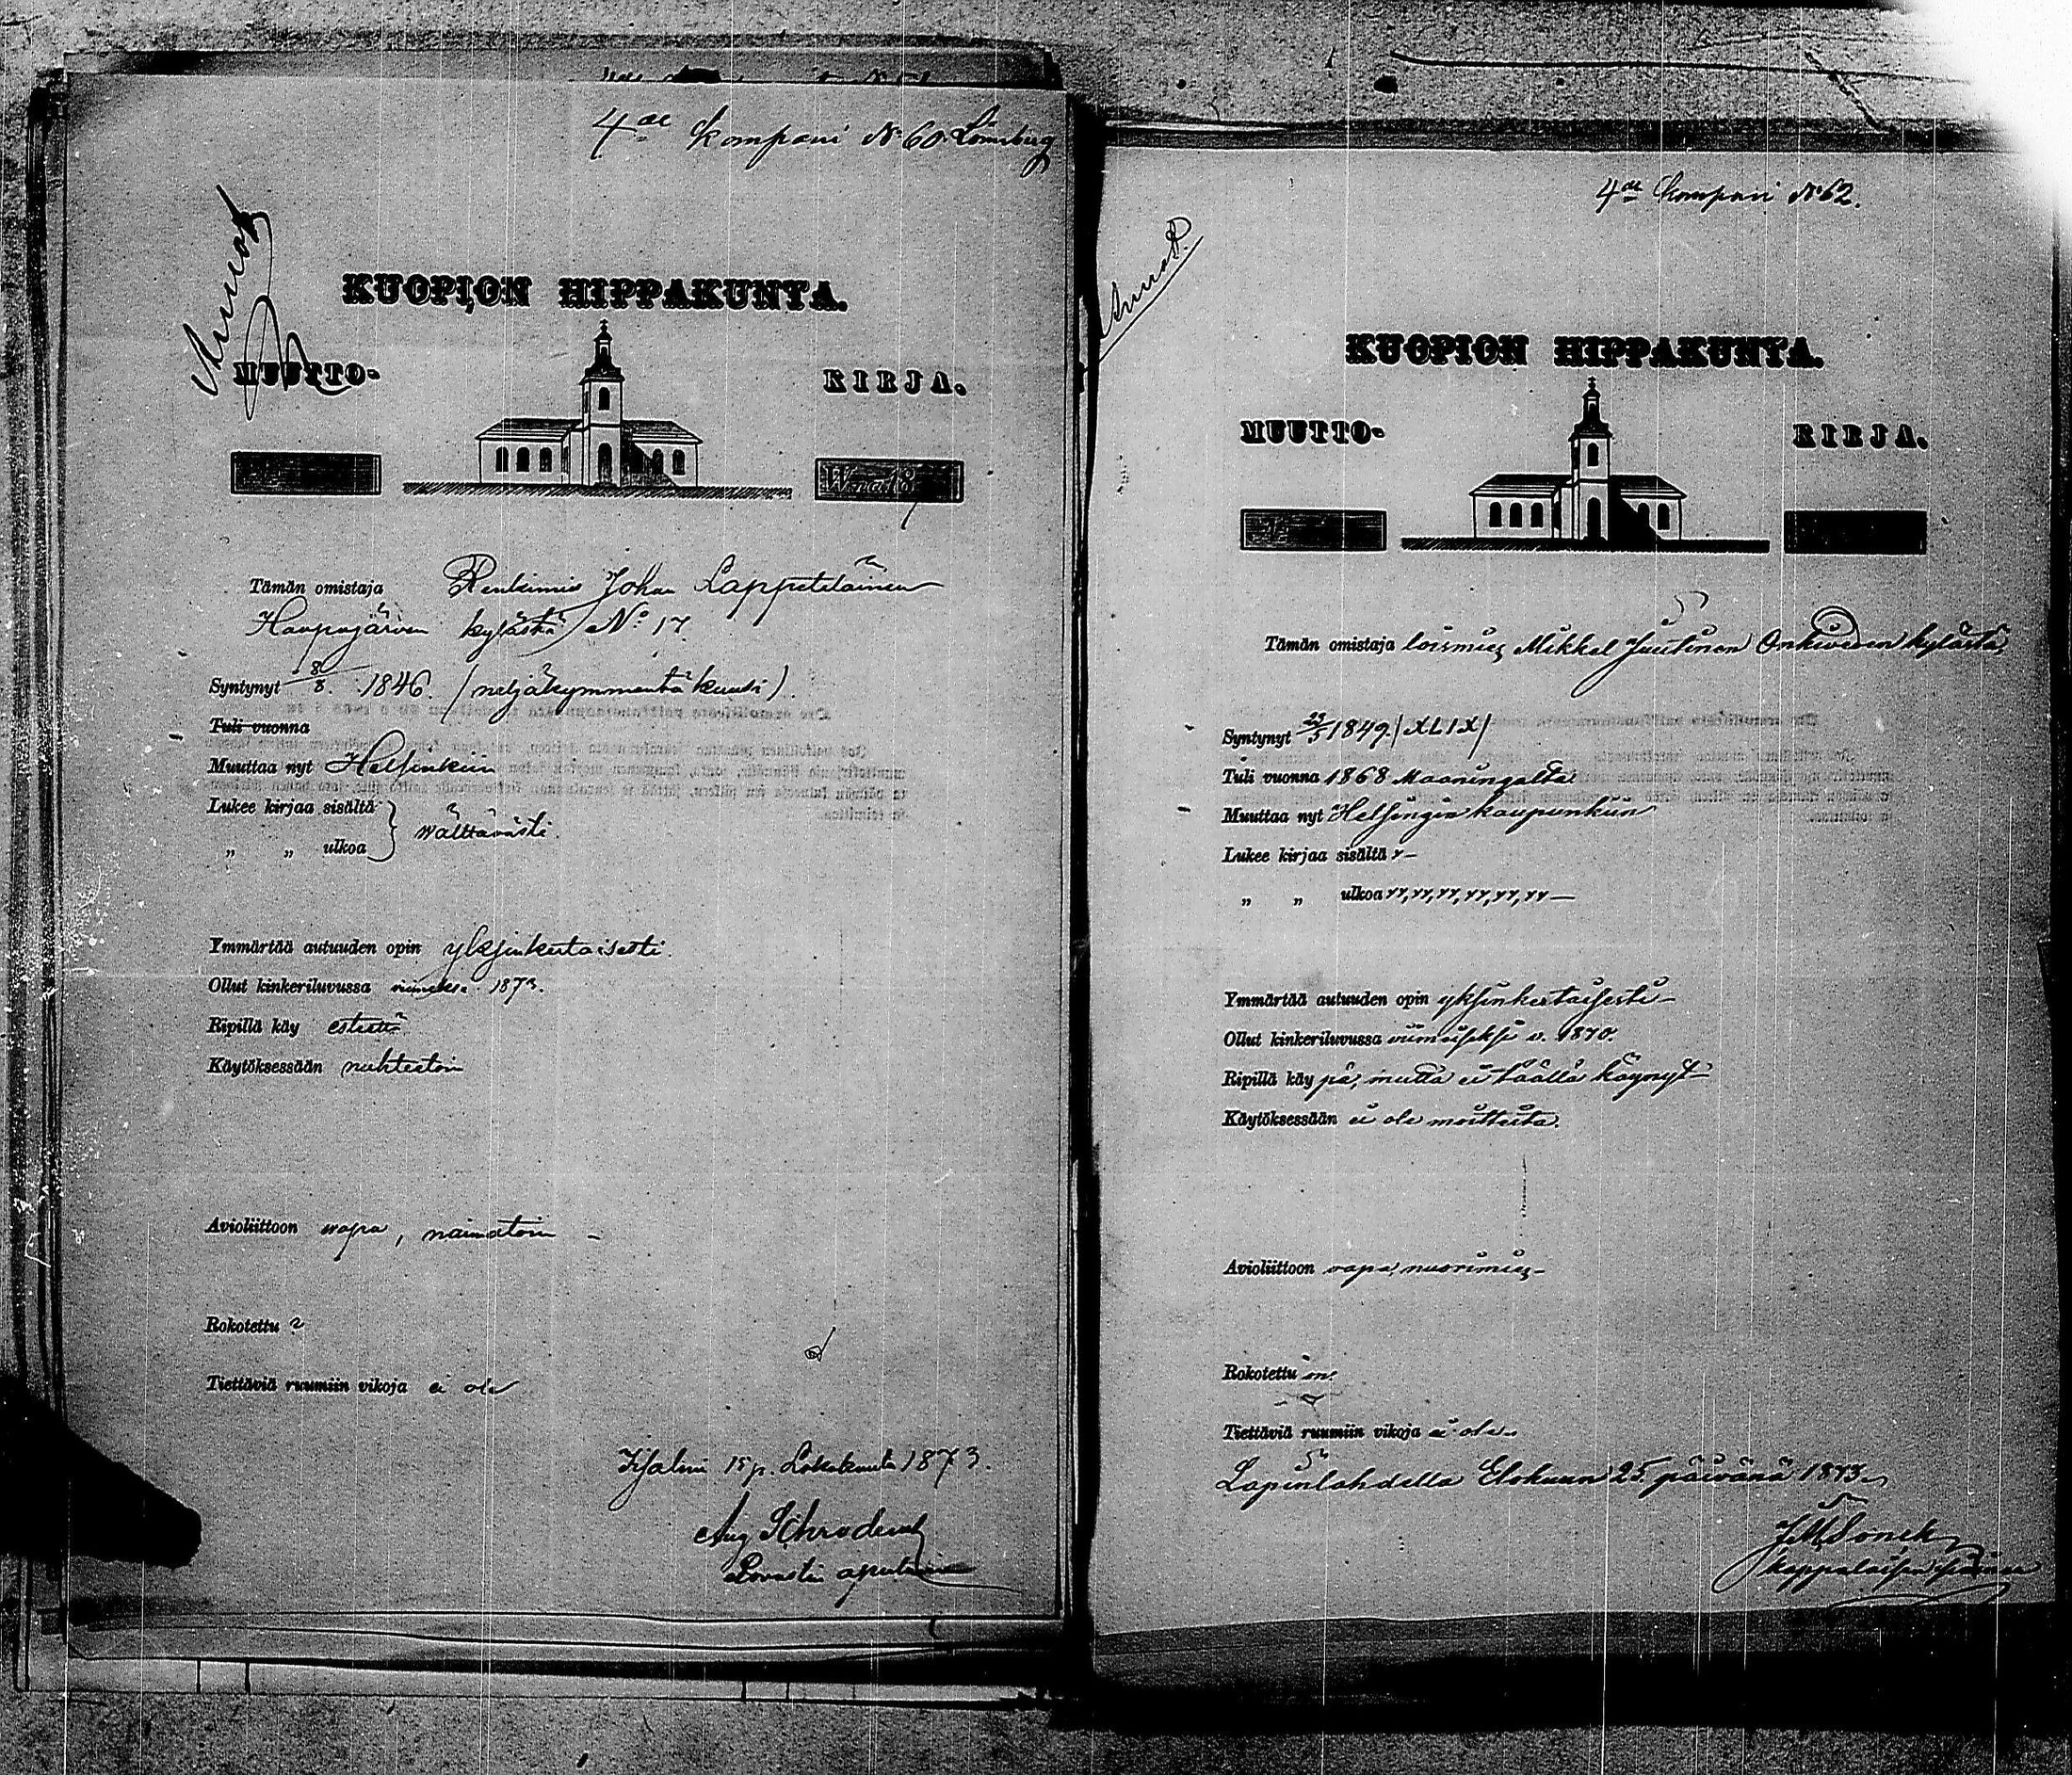 4de Kompani No 60. Lönnberg
KUOPION HIPPAKUNTA.
MUUTTO- KIRJA.
Tämän omistaja Renkimies Johan Lappeteläinen
Haapajärven kylästä No 17.
Syntynyt 8/8. 1846. (neljäkymmentä kuusi).
Tuli vuonna
Muuttaa nyt Helsinkiin
Lukee kirjaa sisältä
wälttäwästi.
„ „ ulkoa
Ymmärtää autuuden opin yksinkertaisesti.
Ollut kinkeriluvussa viimeksi 1873.
Ripillä käy esteettä
Käytöksessään nuhteetoin
Avioliittoon wapa, naimatoin –
Rokotettu ?
Tiettäviä ruumiin vikoja ei ole
Iisalmi 15 p. Lokakuuta 1873.
Aug Schroderus
Rovastin apulainen
4de Kompani No 62.
KUOPION HIPPAKUNTA.
MUUTTO- KIRJA.
Tämän omistaja loismies Mikkel Juutinen Onkiveden kylästä,
Syntynyt 23/5 1849. (XLIX)
Tuli vuonna 1868 Maaningalta
Muuttaa nyt Helsingin kaupunkiin
Lukee kirjaa sisältä
„ „ ulkoa
Ymmärtää autuuden opin yksinkertaisesti –
Ollut kinkeriluvussa viimiseksi v. 1870.
Ripillä käy pä, mutta ei täällä käynyt –
Käytöksessään ei ole moitteita.
Avioliittoon vapa, nuorimies –
Rokotettu on.
Tiettäviä ruumiin vikoja ei ole.
Lapinlahdella Elokuun 25. päivänä 1873.
kappalaisen